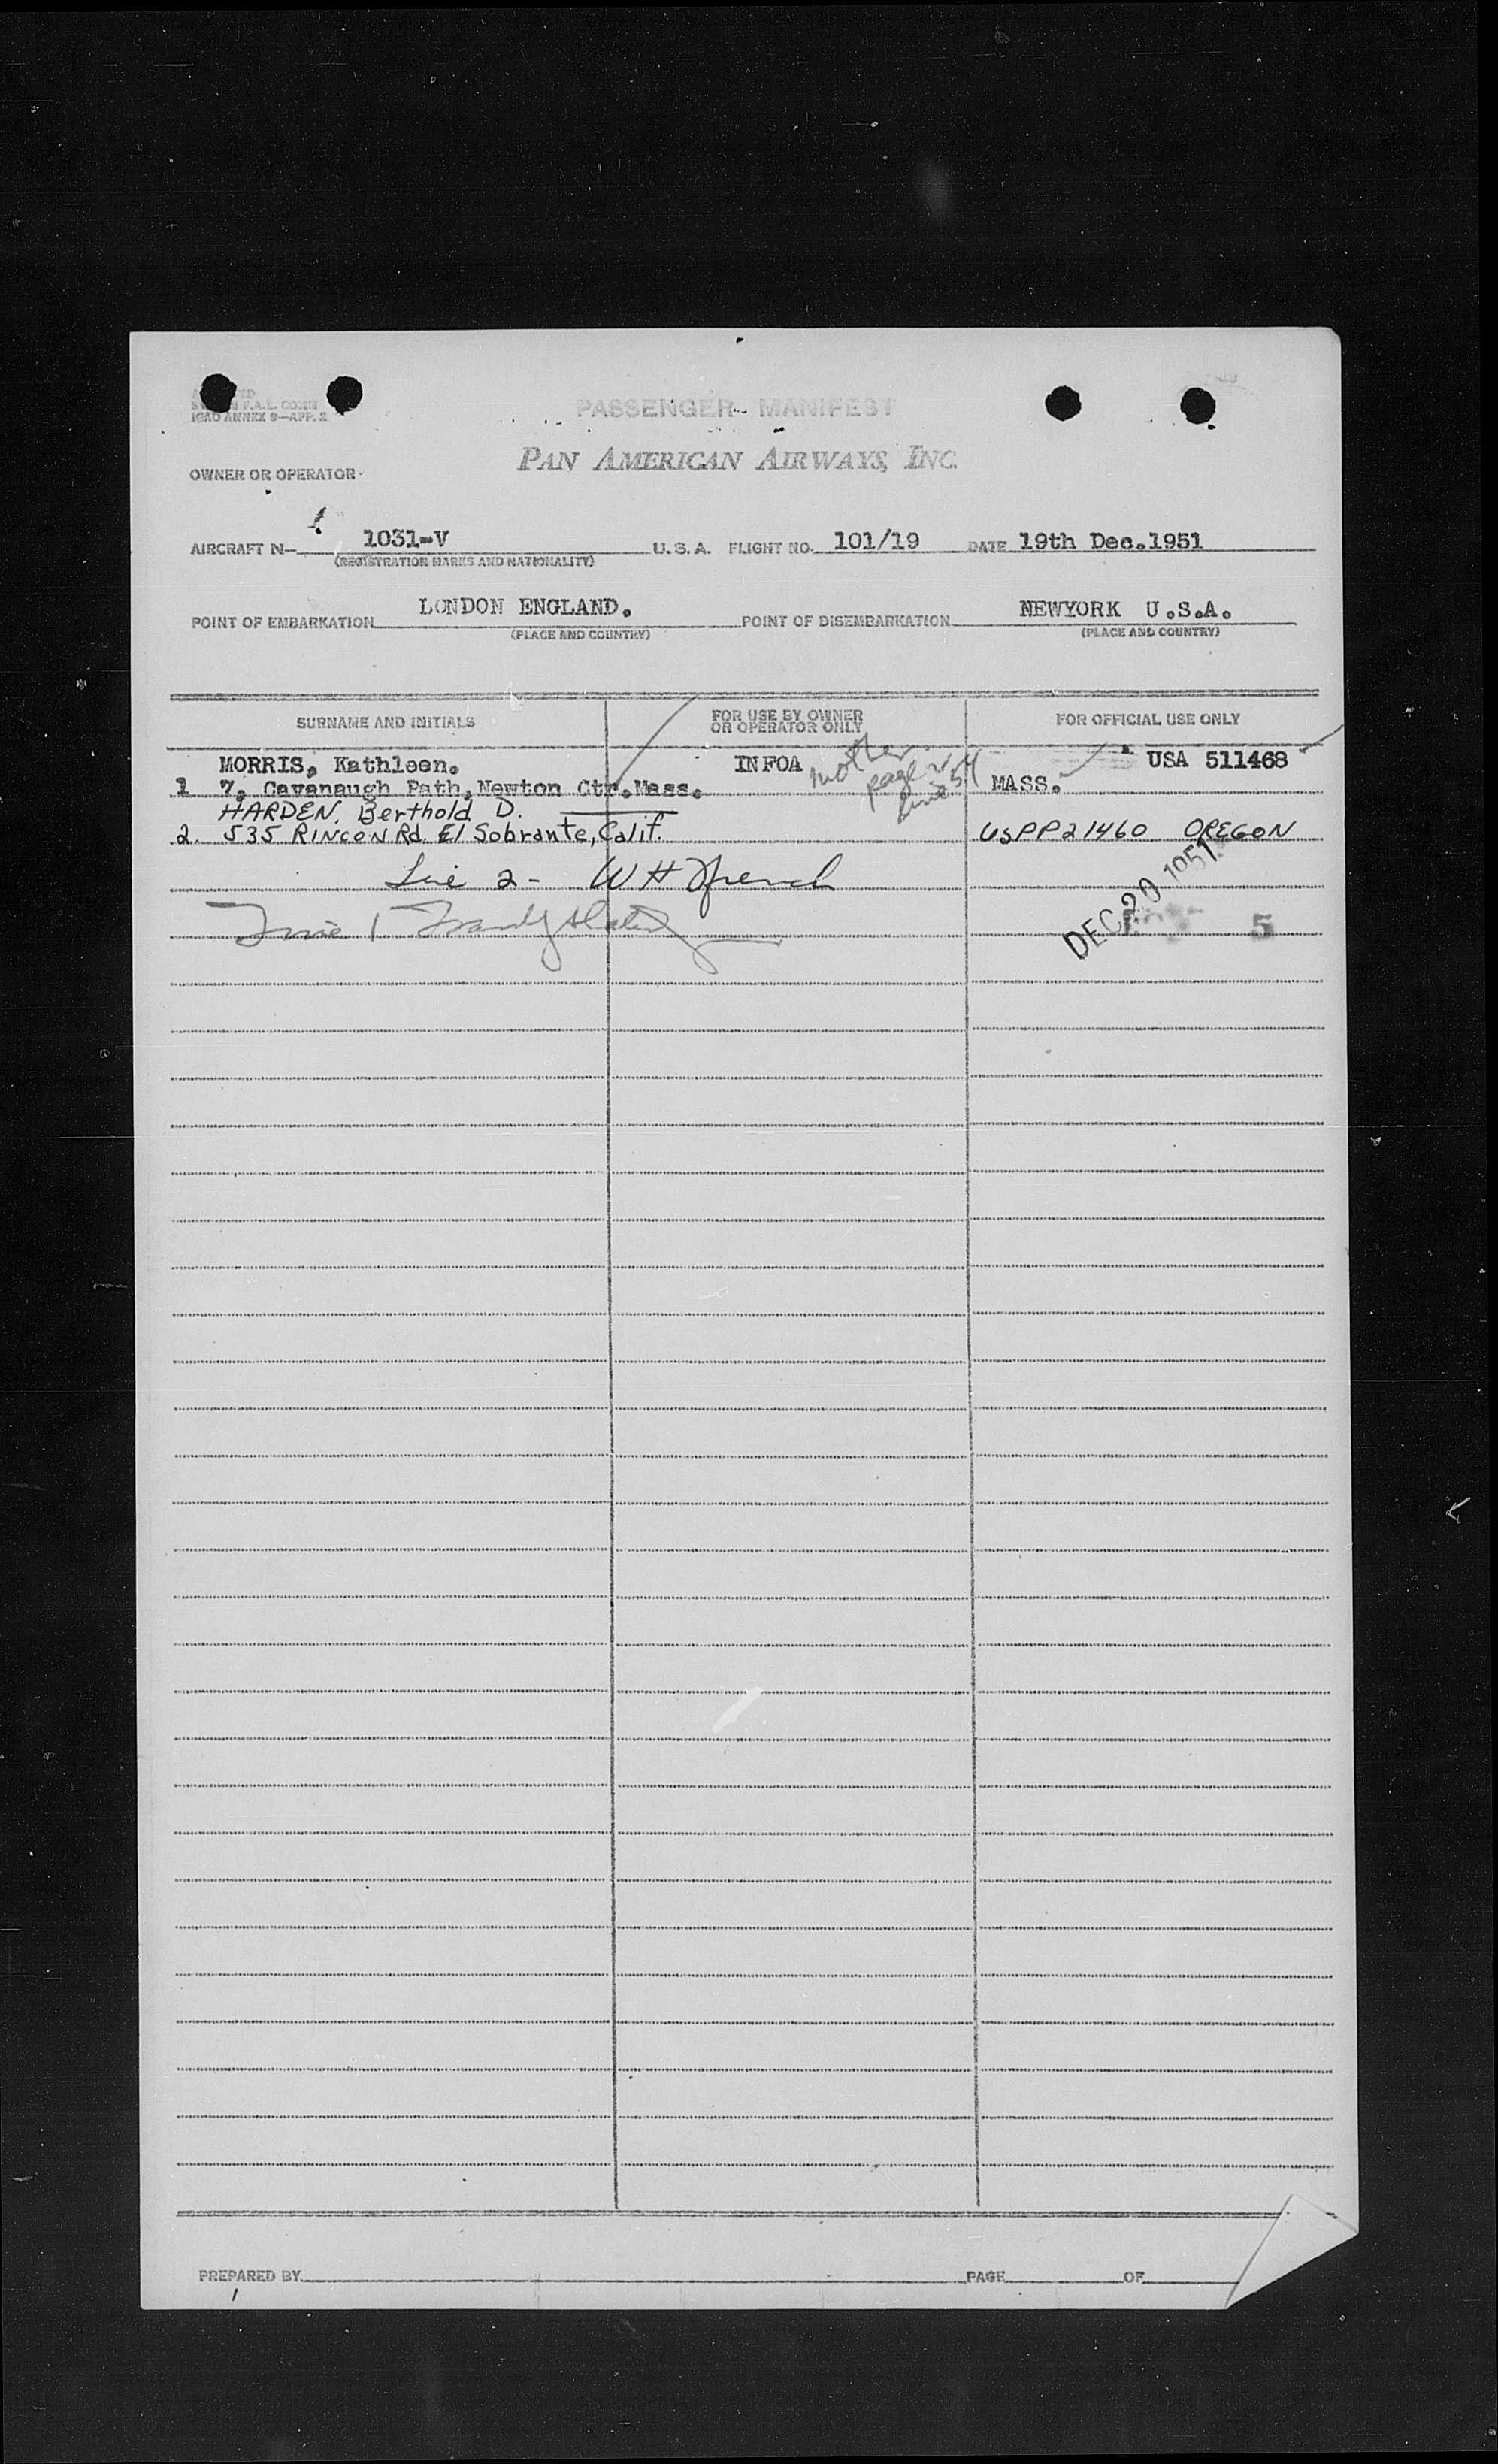 ICAO ANNEX 9—APP. 2
PASSENGER MANIFEST
PAN AMERICAN AIRWAYS, INC.
OWNER OR OPERATOR
AIRCRAFT N— 1031-V U.S.A. FLIGHT NO. 101/19 DATE 19th Dec.1951
(REGISTRATION MARKS AND NATIONALITY)
POINT OF EMBARKATION LONDON ENGLAND. POINT OF DISEMBARKATION NEWYORK U.S.A.
(PLACE AND COUNTRY) (PLACE AND COUNTRY)
SURNAME AND INITIALS FOR USE BY OWNER OR OPERATOR ONLY FOR OFFICIAL USE ONLY
MORRIS, Kathleen. INFOA mother USA 511468
1 7, Cavanaugh Path, Newton Ctr.Mass. page line 54 MASS.
HARDEN, Berthold D.
2. 535 RINCON Rd. El Sobrante, Calif. US PP 21460 OREGON
Line 2 - W H French
Line 1
DEC 20 1951
5
PREPARED BY PAGE OF